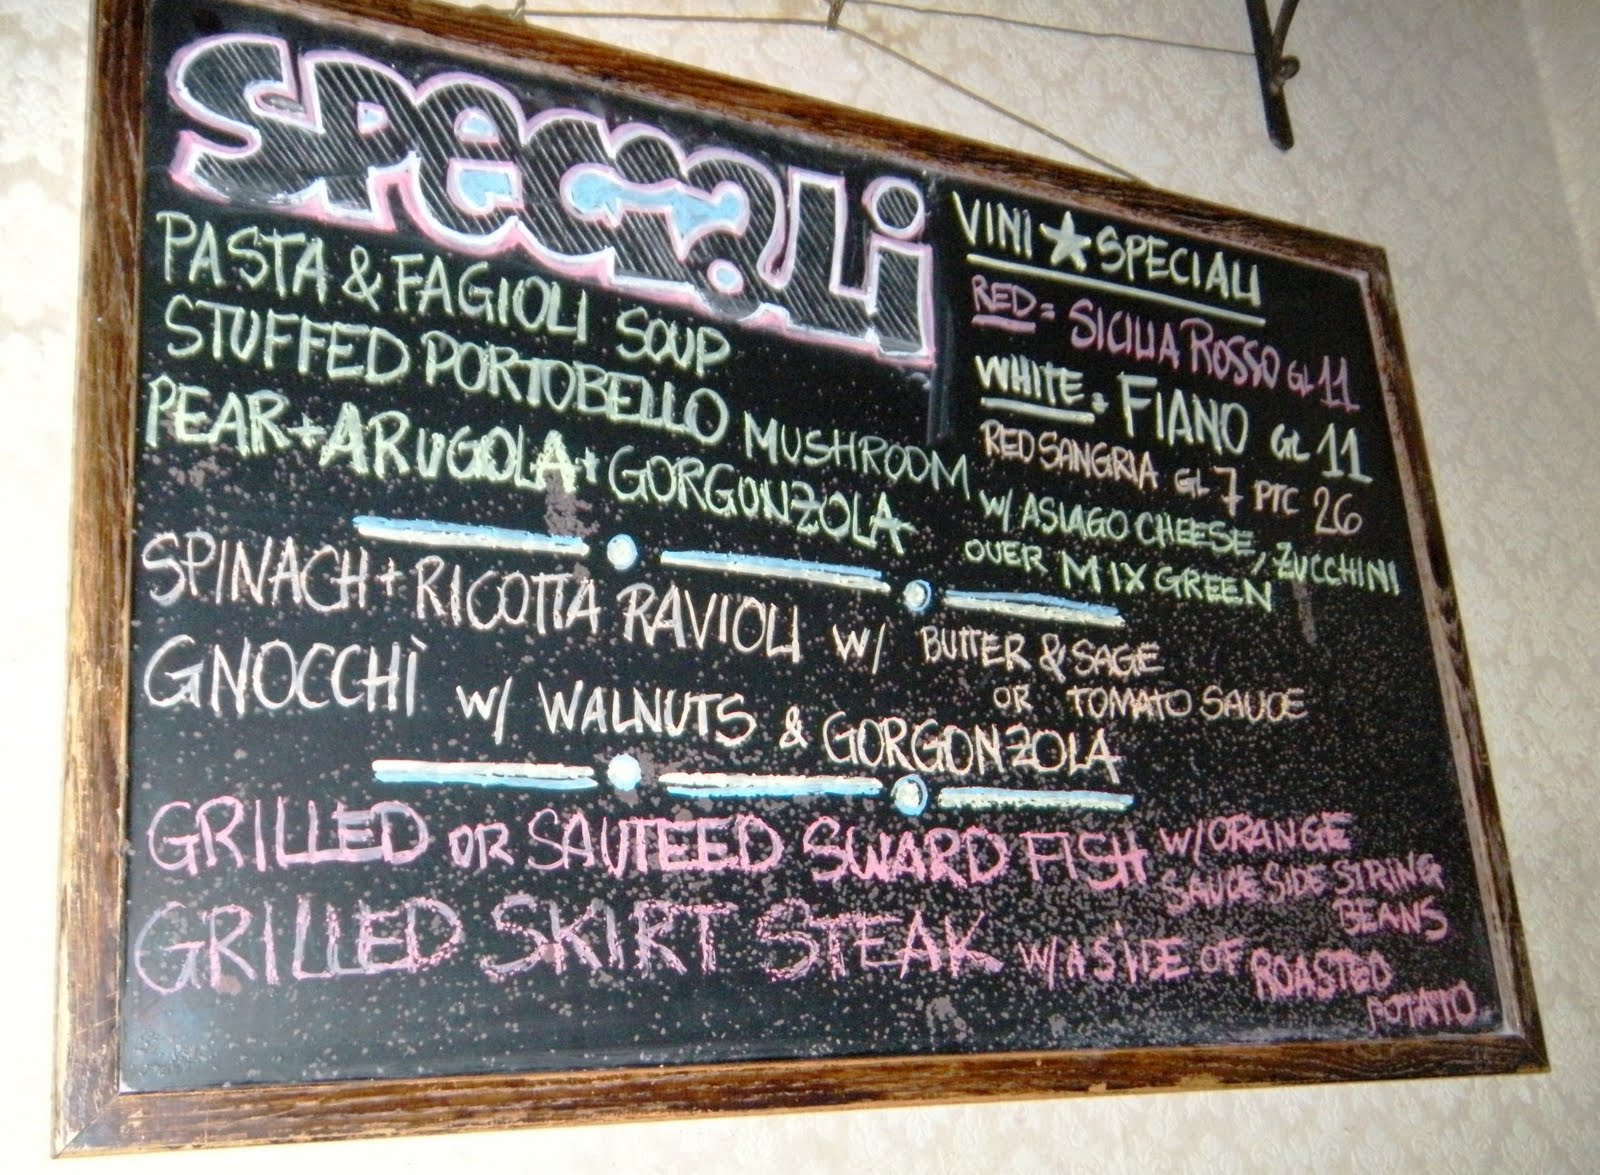 SPECIALI
PASTA & FAGIOLI SOUP
STUFFED PORTOBELLO MUSHROOM w/ ASIAGO CHEESE, ZUCCHINI
OVER MIX GREEN
PEAR + ARUGOLA + GORGONZOLA
SPINACH + RICOTTA RAVIOLI w/ BUTTER & SAGE
OR TOMATO SAUCE
GNOCCHI w/ WALNUTS & GORGONZOLA
GRILLED OR SAUTEED SWARD FISH w/ ORANGE
SAUCE SIDE STRING
BEANS
GRILLED SKIRT STEAK w/ A SIDE OF ROASTED
POTATO
VINI ★ SPECIALI
RED = SICILIA ROSSO GL 11
WHITE = FIANO GL 11
RED SANGRIA GL 7 PTC 26